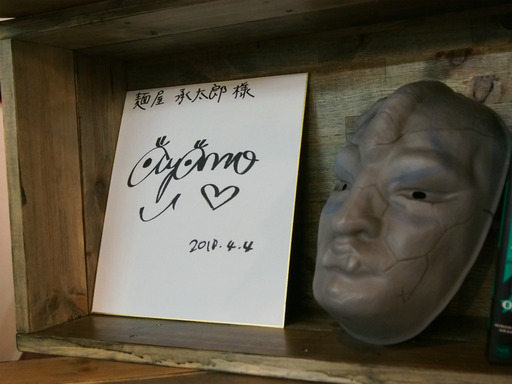 麺屋 承太郎 様
Ayomo
2018.4.4